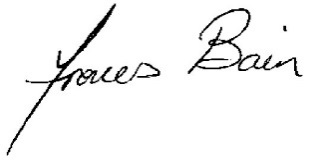 Frances Bain